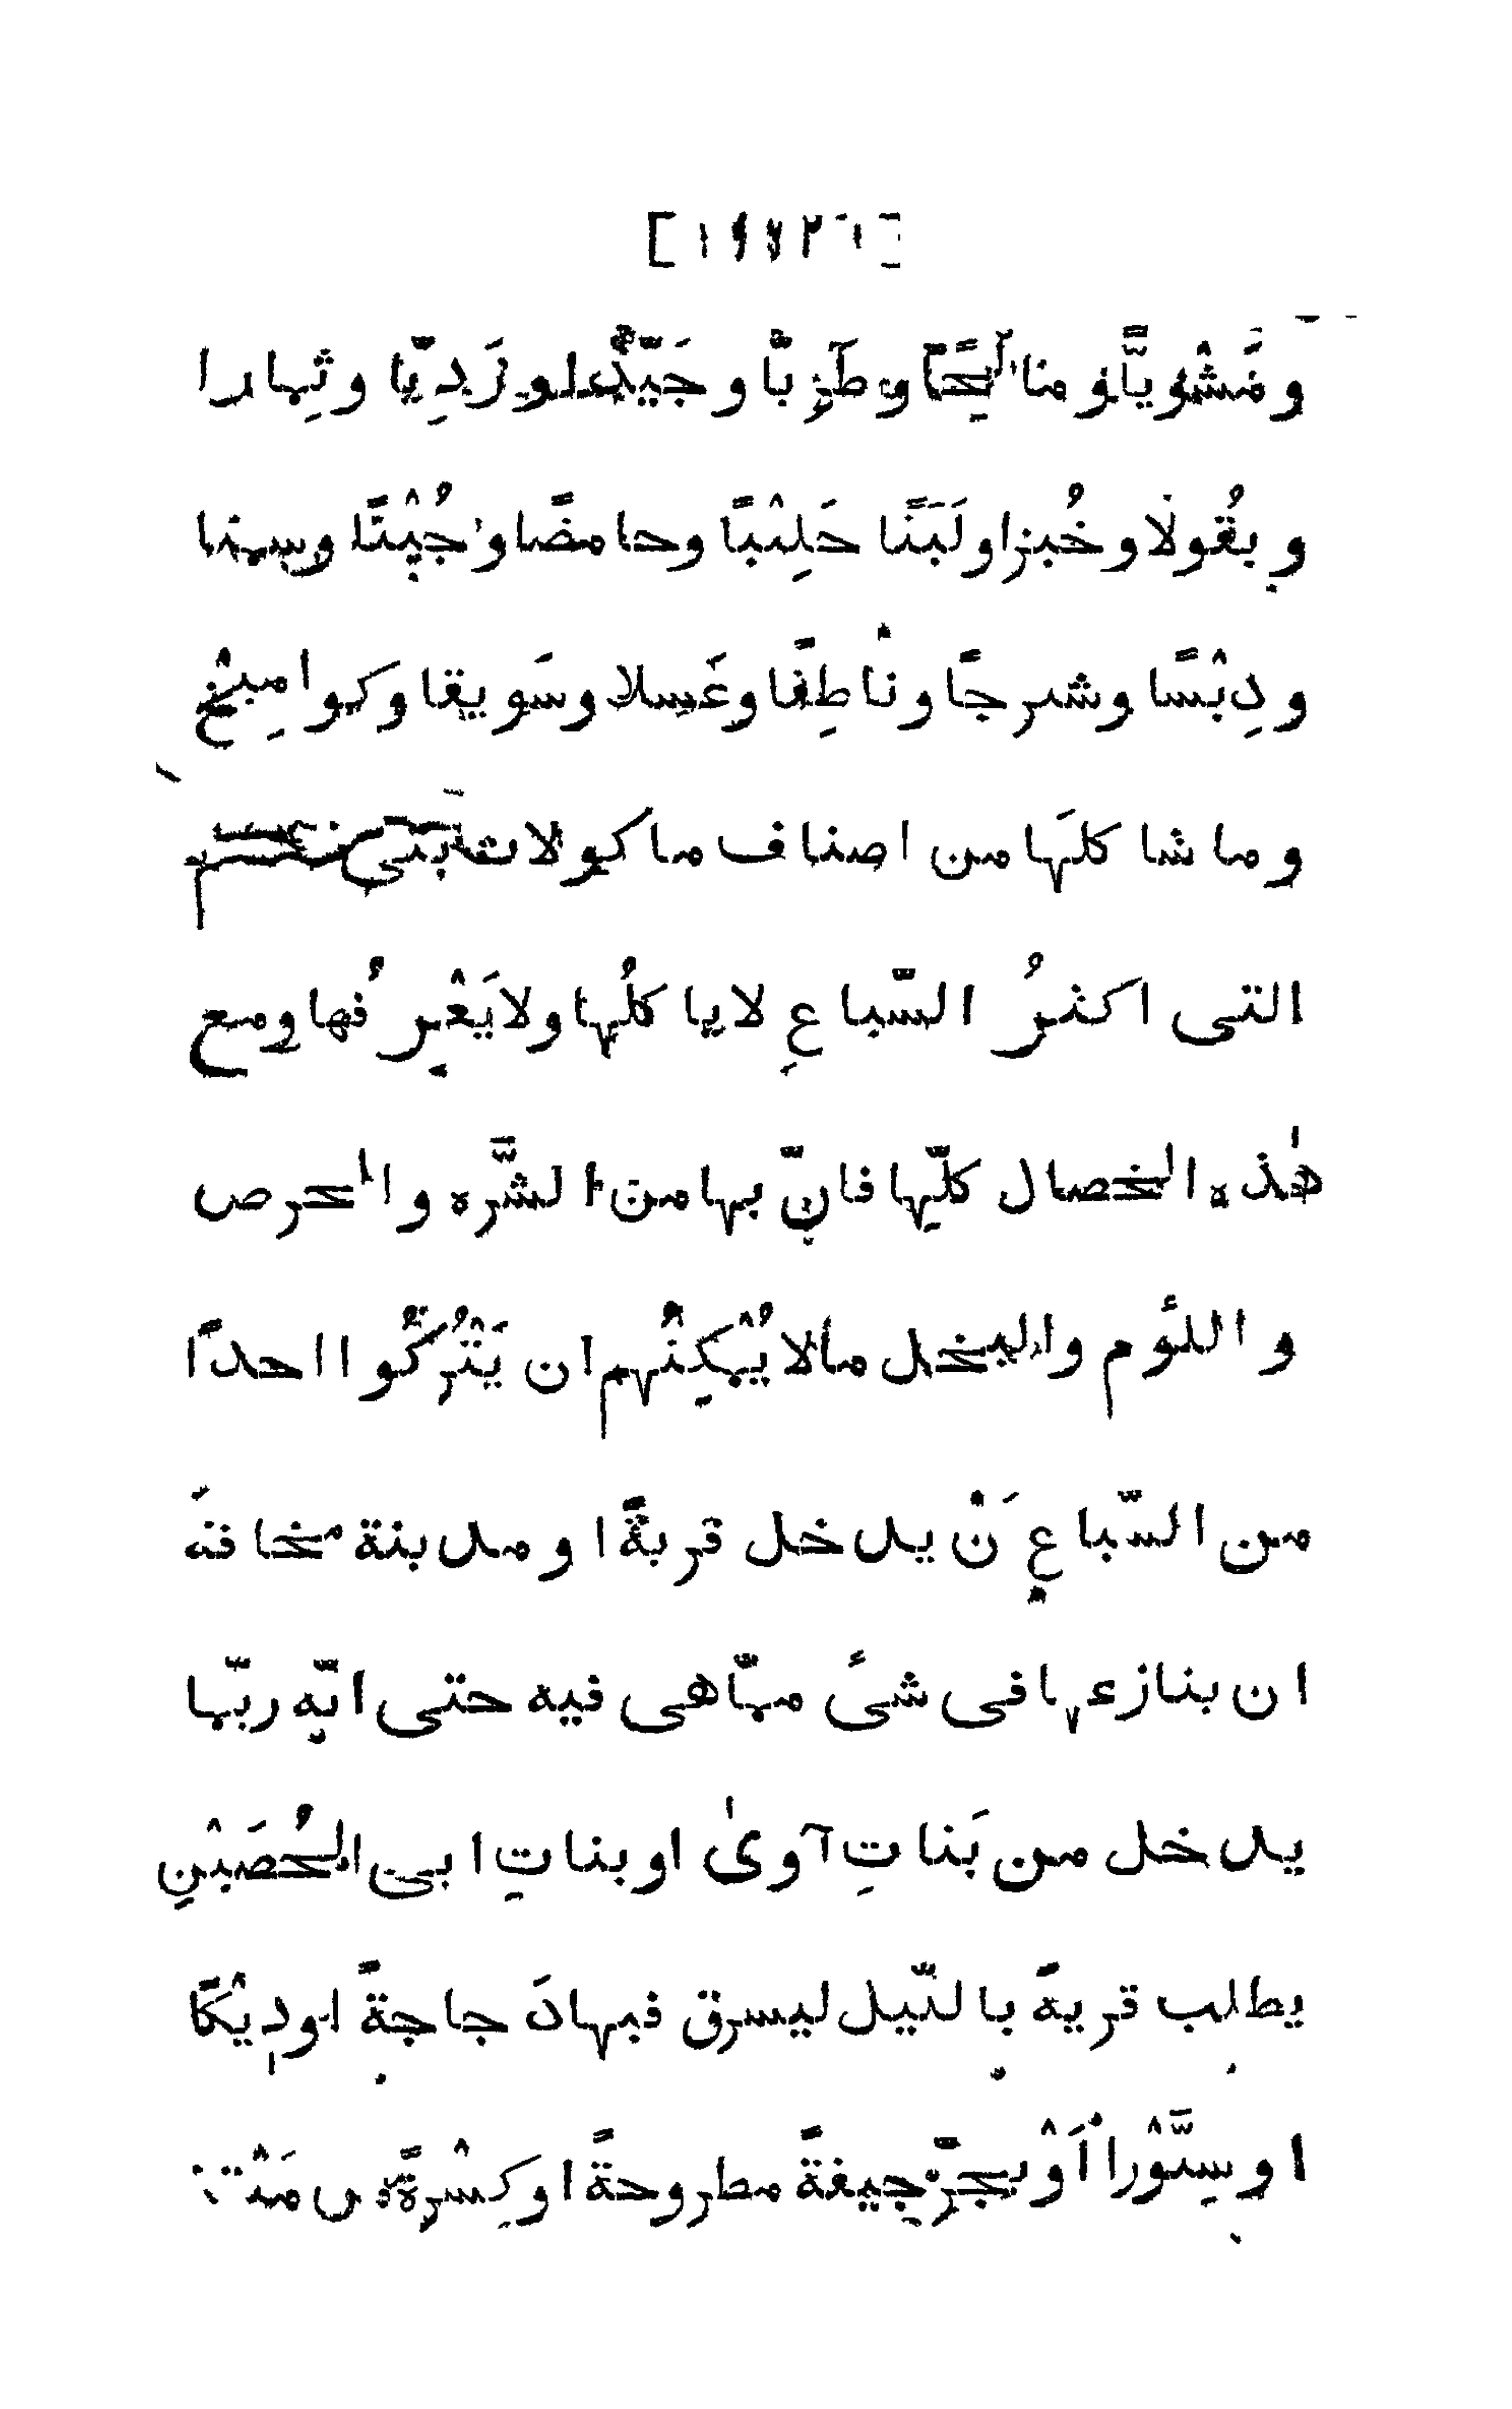 ومَشْويًّا ومالحًا وطَرِيًّا وجَيِّدا ورَدِيّا وثِمارا
وبُقُولًا وخُبزا ولَبَنًا حَلِيْبًا وحامضًا وجُبْنًا وسمنا
ودِبْسًا وشيرجًا وناطِفًا وعَسلا وسَويقا وكوامِيْخ
وما شاكلَها من اصناف ماكولات بنى
التى اكثرُ السّباعِ لا ياكلُها ولا يَعْرِفُها ومع
هٰذه الخصال كلّها فانّ بها من الشَّره والحرص
واللؤم والبخل مالا يُمْكِنُهم ان يَتْرُكُوا احدًا
من السّباعِ َنْ يدخل قريةً او مدينة مخافةَ
ان ينازعها فى شئ ممّا هى فيه حتى انّه ربّما
يدخل من بَناتِ آوىٰ او بناتِ ابى الحُصَيْنِ
يطلب قريةً بالليّل ليسرق فيها دَجاجةً او دِيْكًا
او سِنَّوْرا أَوْ يجرّ جيفةً مطروحةً او كِسْرةً